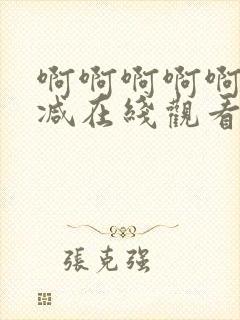 啊啊啊啊啊
减在綫觀看
張克强